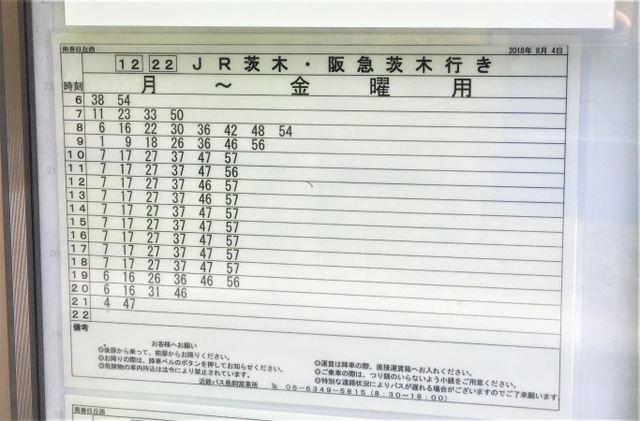 南春日丘西
2018年 8月 4日
12 22 JR茨木・阪急茨木行き
時刻 月 ～ 金 曜 用
6 38 54
7 11 23 33 50
8 6 16 22 30 36 42 48 54
9 1 9 18 26 36 46 56
10 7 17 27 37 47 57
11 7 17 27 37 47 56
12 7 17 27 37 46 57
13 7 17 27 37 46 57
14 7 17 27 37 47 57
15 7 17 27 37 47 57
16 7 17 27 37 47 57
17 7 17 27 37 47 57
18 7 17 27 37 47 57
19 6 16 26 36 46 56
20 6 16 31 46
21 4 47
22
備考
お客様へお願い
◎後扉から乗って、前扉からお降りください。
◎お降りの際は、降車ベルのボタンを押してお知らせください。
◎危険物の車内持込は法令により禁止されています。
◎運賃は降車の際、直接運賃箱へお入れください。
◎ご乗車の際は、つり銭のいらないよう小銭をご用意ください。
◎特別な道路状況によりバスが遅れる場合がございますのでご了承願います
近鉄バス鳥飼営業所 ℡ 06-6349-5815(8:30～18:00)
南春日丘西